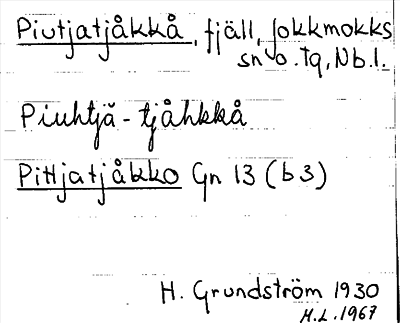 Piutjatjåkkå, fjäll, Jokkmokks
sn o. tq, Nb.l.
Piuhtjă-tjåhkkå
Pittjatjåkko Gn 13 (b3)
H. Grundström 1930
H.L. 1967